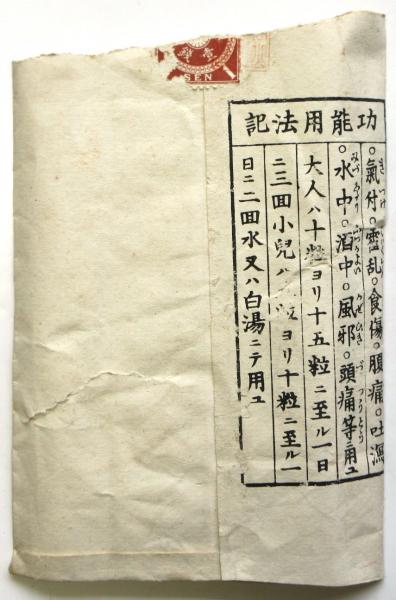 SEN
功能用法記
。氣付。霍乱。食傷。腹痛。吐瀉
。水中。酒中。風邪。頭痛等ニ用ユ
大人ハ十粒ヨリ十五粒ニ至ル一日
ニ三回小兒ハ粒ヨリ十粒ニ至ル一
日ニ二回水又ハ白湯ニテ用ユ